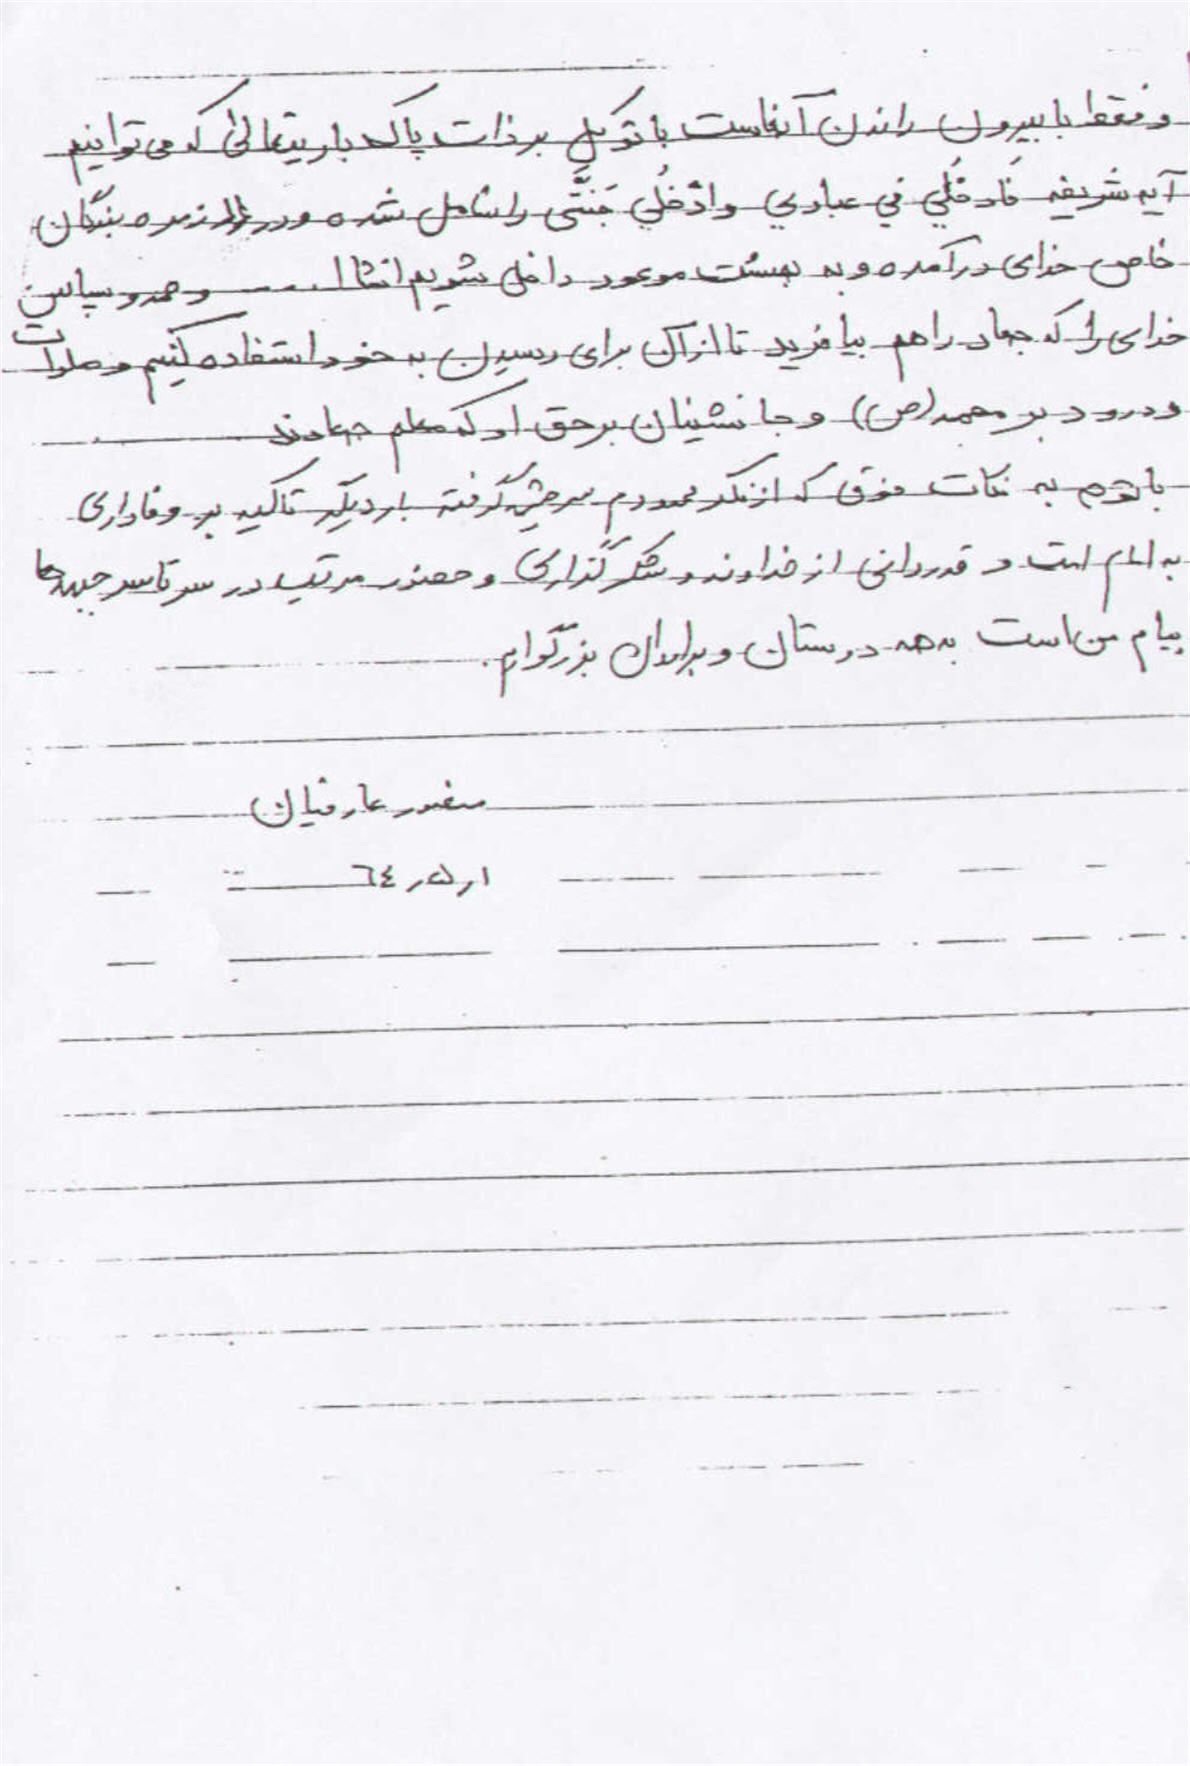 و فقط با بیرون راندن آنهاست با توکل بر ذات پاک باریتعالی که می توانیم
آیه شریفه فَادخُلي في عبادي وادْخُلي جَنَّتی را شامل شده و در زمره بندگان
خاص خدای درآمده و به بهشت موعود داخل شویم انشاا.... و حمد و سپاس
خدای را که جهاد را هم بیافرید تا از آن برای رسیدن به خود استفاده کنیم و صلوات
و درود بر محمد (ص) و جانشینان بر حق او که معلم جهادند
با توجه به نکات فوق که از فکر محدودم سرچشمه گرفته بار دیگر تاکید بر وفاداری
به امام امت و قدردانی از خداوند و شکر گذاری و حضور مرتب در سرتاسر جبهه ها
پیام من است به همه دوستان و برادران بزرگوارم.
منصور عارفیان